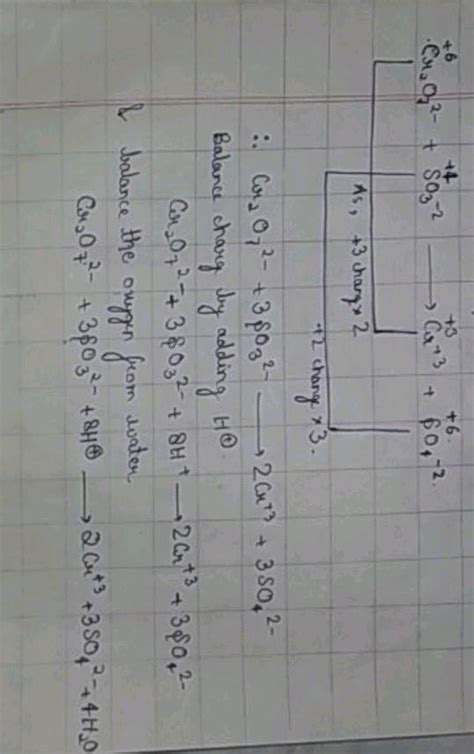 +6 +4 +3 +6
Cr₂O₇²⁻ + SO₃⁻² ⟶ Cr⁺³ + SO₄⁻².
As, +3 change × 2
+2 change × 3.
∴ Cr₂O₇²⁻ + 3SO₃²⁻ ⟶ 2Cr⁺³ + 3SO₄²⁻
Balance charg by adding H⊕.
Cr₂O₇²⁻ + 3SO₃²⁻ + 8H⁺ ⟶ 2Cr⁺³ + 3SO₄²⁻
& balance the oxygen from water
Cr₂O₇²⁻ + 3SO₃²⁻ + 8H⊕ ⟶ 2Cr⁺³ + 3SO₄²⁻ + 4H₂O